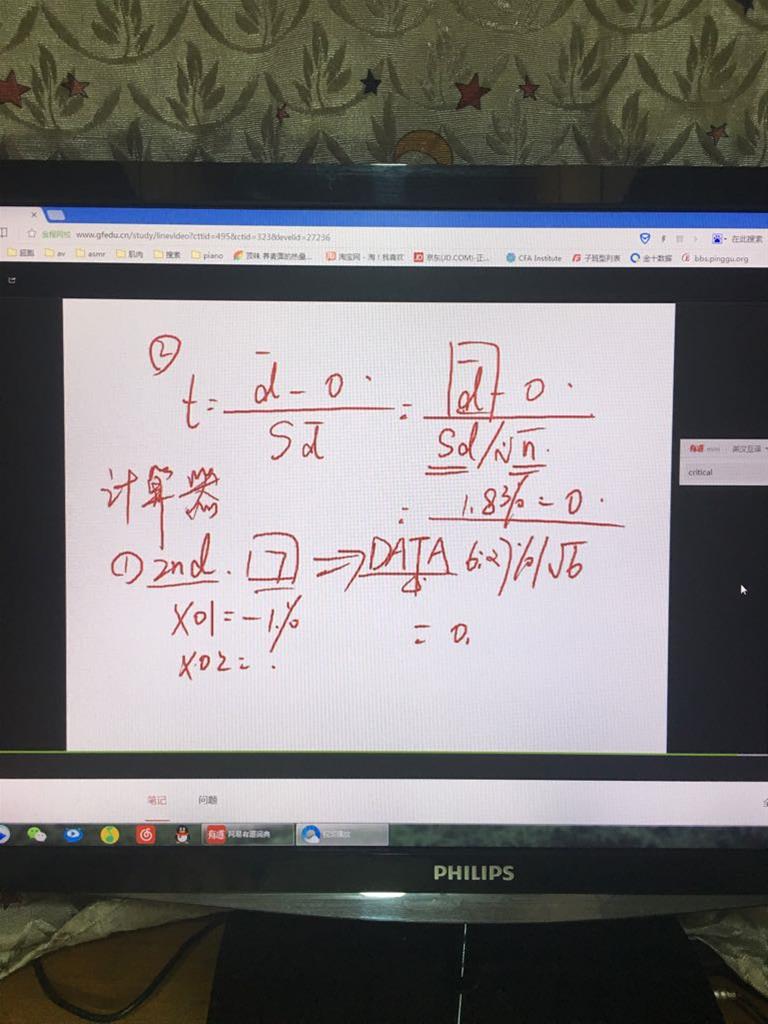 www.gfedu.cn/study/linevideo?cttid=495&ctid=323&levelid=27236
在此搜索
av
asmr
肌肉
搜索
piano
淘宝网 - 淘！我喜欢
京东(JD.COM)-正...
CFA Institute
子班型列表
金十数据
bbs.pinggu.org
②
t = d̄ - 0 / S d̄ = d̄ - 0 / Sd/√n
计算器
= 1.83% - 0
① 2nd . 7 ⇒ DATA 6.27%/√6
X01 = -1%
= 0.
X02 = .
有道 mini
英汉互译
critical
笔记
问题
有道
网易有道词典
PHILIPS